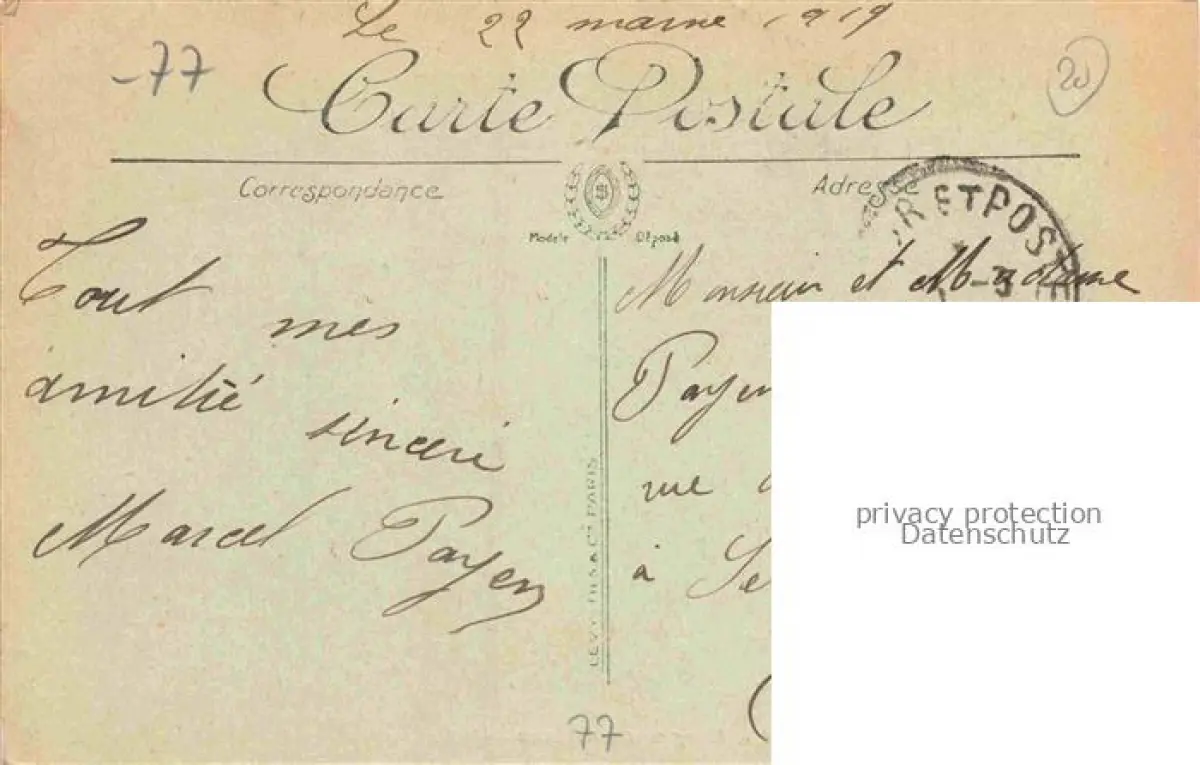 Le 22 marne 1919
-77
20
Carte Postale
Correspondance
Adresse
Modèle Déposé
RETPOST
Tout
mes
amitié
sincere
Marcel Payen
LEVY FILS & Cie PARIS
Monsieur et Madame
Payen
rue
à Se
77
privacy protection
Datenschutz